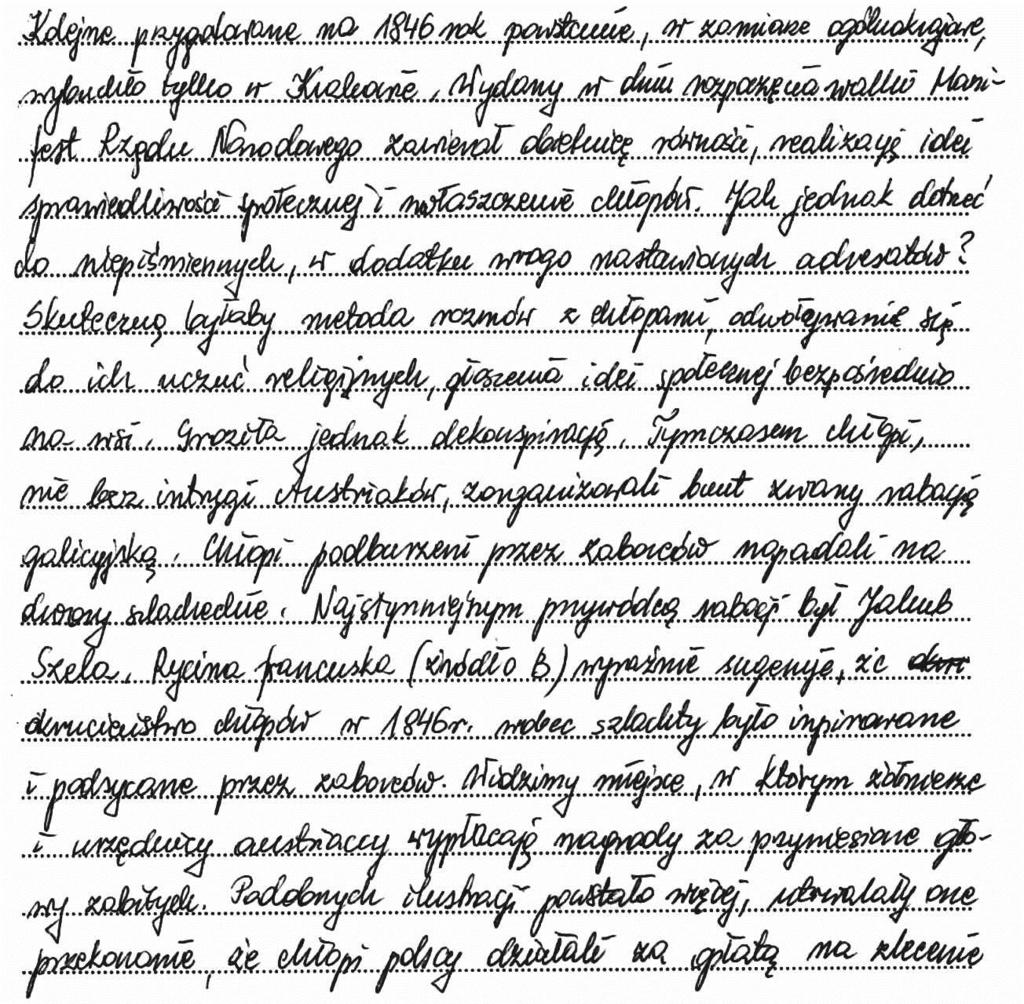 Kolejne przygotowane na 1846 rok powstanie, w zamiarze ogólnokrajowe,
wybuchło tylko w Krakowie. Wydany w dniu rozpoczęcia walki Mani-
fest Rządu Narodowego zawierał obietnicę równości, realizację idei
sprawiedliwości społecznej i uwłaszczenie chłopów. Jak jednak dotrzeć
do niepiśmiennych, w dodatku wrogo nastawionych adresatów?
Skuteczną byłaby metoda rozmów z chłopami, odwoływanie się
do ich uczuć religijnych, głoszenia idei społecznej bezpośrednio
na wsi. Groziła jednak dekonspiracją. Tymczasem chłopi,
nie bez intrygi Austriaków, zorganizowali bunt zwany rabacją
galicyjską. Chłopi podburzeni przez zaborców napadali na
dwory szlacheckie. Najsłynniejszym przywódcą rabacji był Jakub
Szela. Rycina francuska (źródło B) wyraźnie sugeruje, że
okrucieństwo chłopów w 1846 r. wobec szlachty było inpirowane
i podsycane przez zaborców. Widzimy miejsce, w którym żołnierze
i urzędnicy austriaccy wypłacają nagrody za przyniesione gło-
wy zabitych. Podobnych ilustracji powstało więcej, utrwalały one
przekonanie, że chłopi polscy działali za opłatą na zlecenie